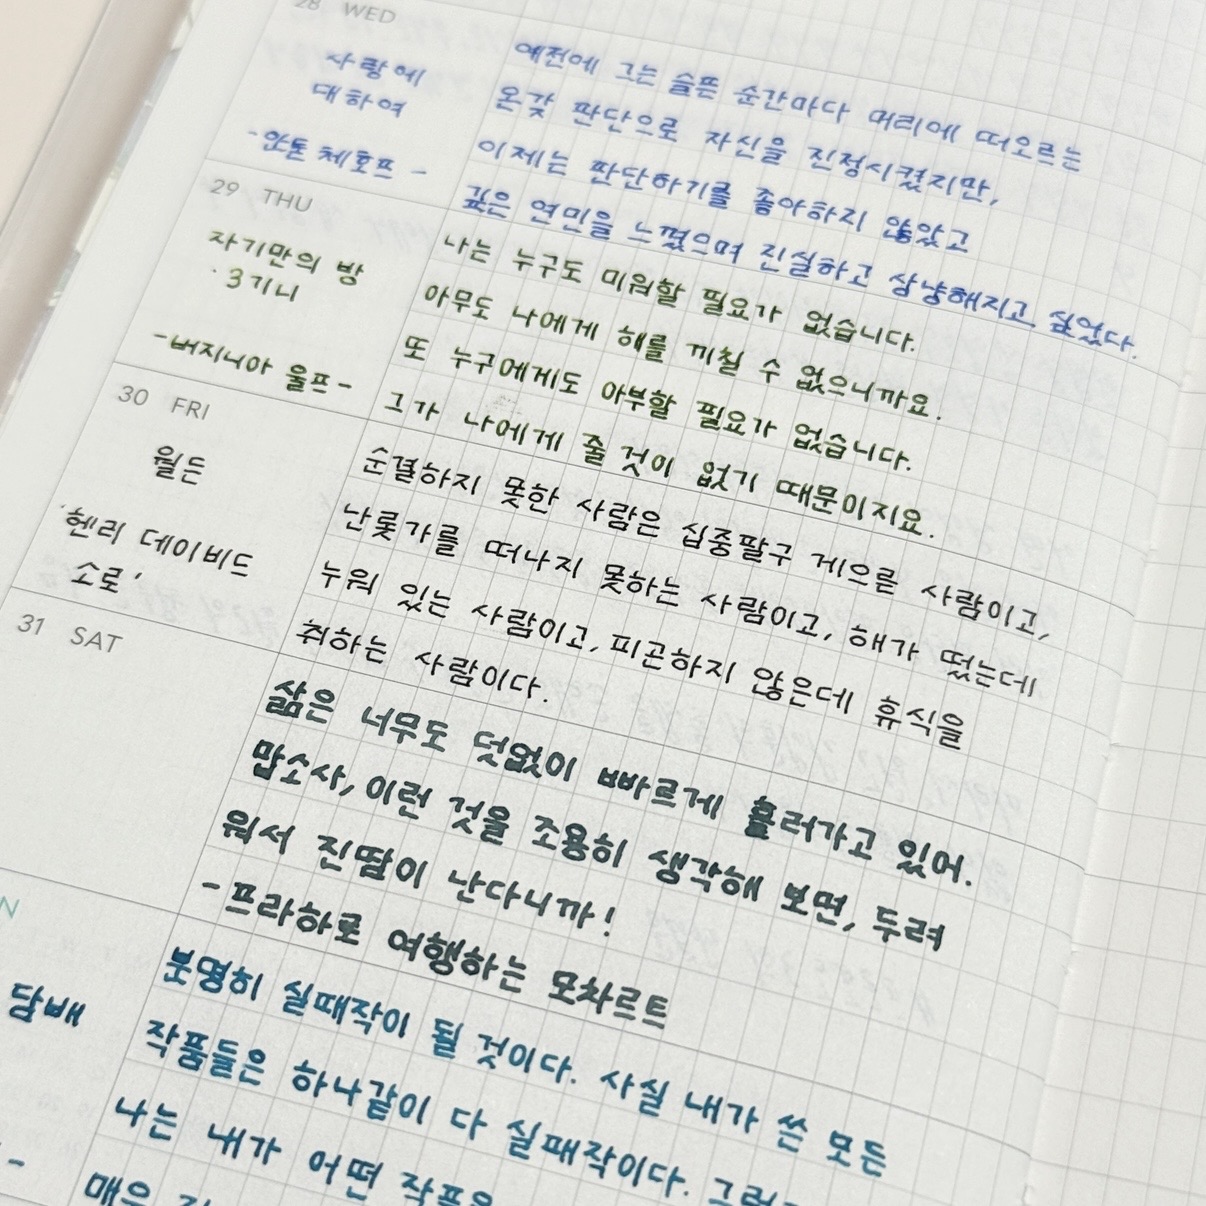 28 WED
사랑에
대하여
-안톤 체호프-
예전에 그는 슬픈 순간마다 머리에 떠오르는
온갖 판단으로 자신을 진정시켰지만,
이제는 판단하기를 좋아하지 않았고
깊은 연민을 느꼈으며 진실하고 상냥해지고 싶었다.
29 THU
자기만의 방
·3기니
-버지니아 울프-
나는 누구도 미워할 필요가 없습니다.
아무도 나에게 해를 끼칠 수 없으니까요.
또 누구에게도 아부할 필요가 없습니다.
그가 나에게 줄 것이 없기 때문이지요.
30 FRI
월든
'헨리 데이비드
소로'
순결하지 못한 사람은 십중팔구 게으른 사람이고,
난롯가를 떠나지 못하는 사람이고, 해가 떴는데
누워 있는 사람이고, 피곤하지 않은데 휴식을
취하는 사람이다.
31 SAT
삶은 너무도 덧없이 빠르게 흘러가고 있어.
맙소사, 이런 것을 조용히 생각해 보면, 두려
워서 진땀이 난다니까!
-프라하로 여행하는 모차르트
N
담배
분명히 실패작이 될 것이다. 사실 내가 쓴 모든
작품들은 하나같이 다 실패작이다.
나는 내가 어떤 작품을
매우